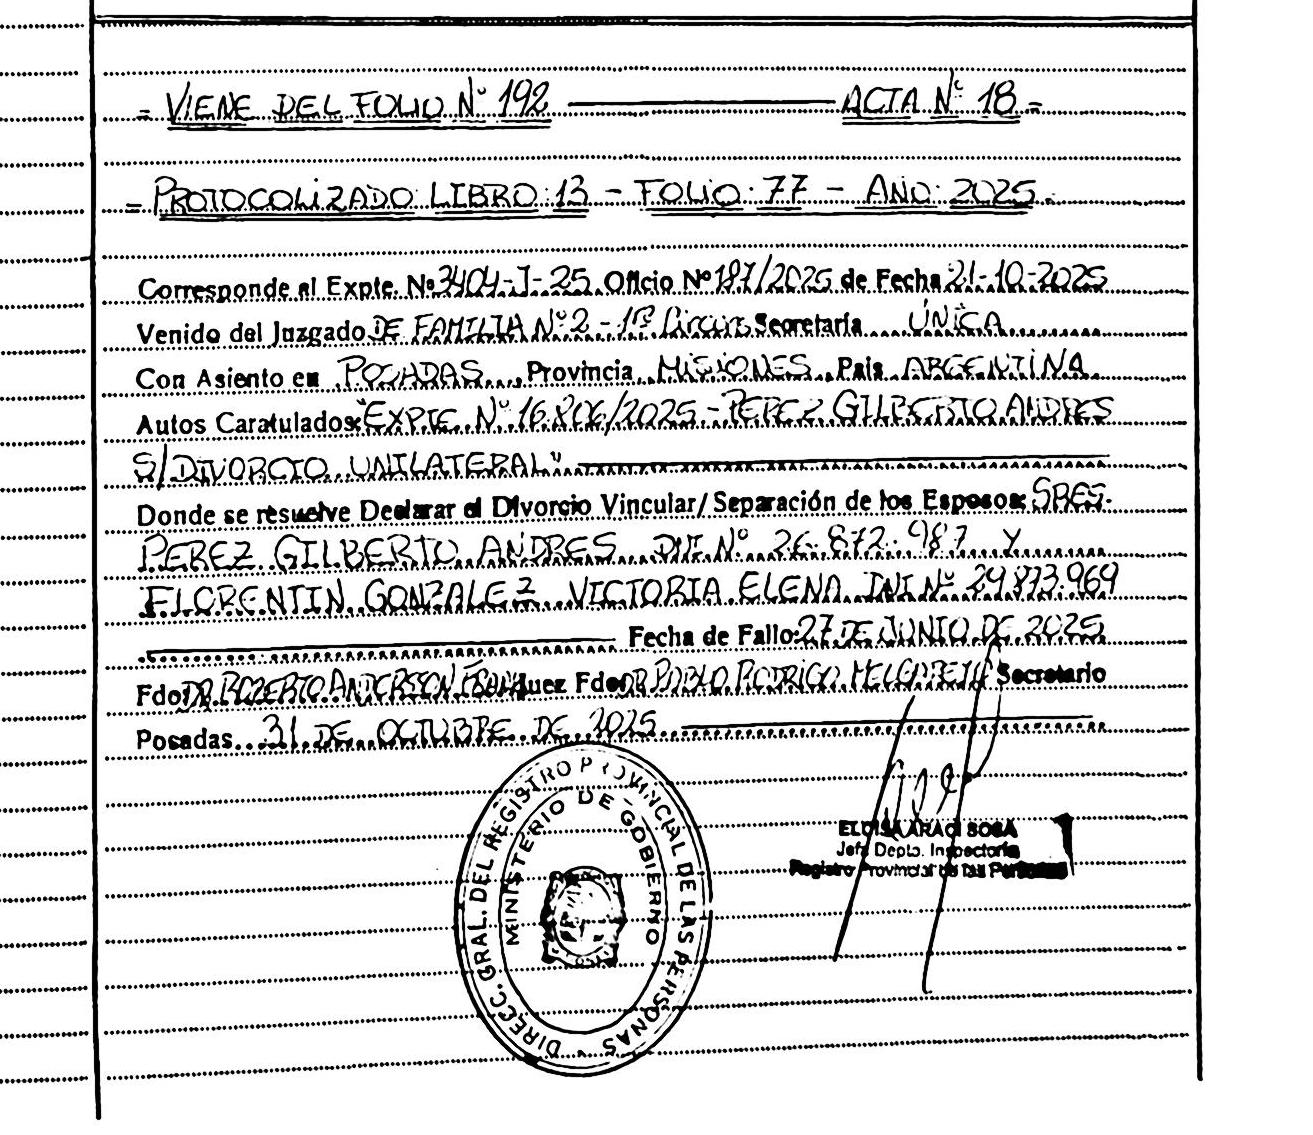 = VIENE DEL FOLIO Nº 192 ACTA Nº 18 =
= PROTOCOLIZADO LIBRO: 13 - FOLIO: 77 - AÑO: 2025.-
Corresponde al Expte. Nº 3404-J-25 Oficio Nº 187/2025 de Fecha 21-10-2025
Venido del Juzgado DE FAMILIA Nº 2 - 1ª Circuns Secretaría ÚNICA
Con Asiento en POSADAS, Provincia MISIONES, País ARGENTINA
Autos Caratulados: "EXPTE. Nº 16.806/2025 - PEREZ GILBERTO ANDRES
S/ DIVORCIO UNILATERAL"
Donde se resuelve Declarar el Divorcio Vincular/ Separación de los Esposos: SRES.
PEREZ GILBERTO ANDRES DNI. Nº 26.872.987 Y
FLORENTIN GONZALEZ VICTORIA ELENA DNI Nº 29.873.969
Fecha de Fallo: 27 DE JUNIO DE 2025
Fdo: DR ROBERTO ANDERSSON Juez Fdo: DR PABLO RODRIGO MELGAREJO Secretario
Posadas 31 DE OCTUBRE DE 2025
DIREC. GRAL. DEL REGISTRO PROVINCIAL DE LAS PERSONAS
MINISTERIO DE GOBIERNO
ELOISA ARACI SOSA
Jefa Depto. Inspectoría
Registro Provincial de las Personas